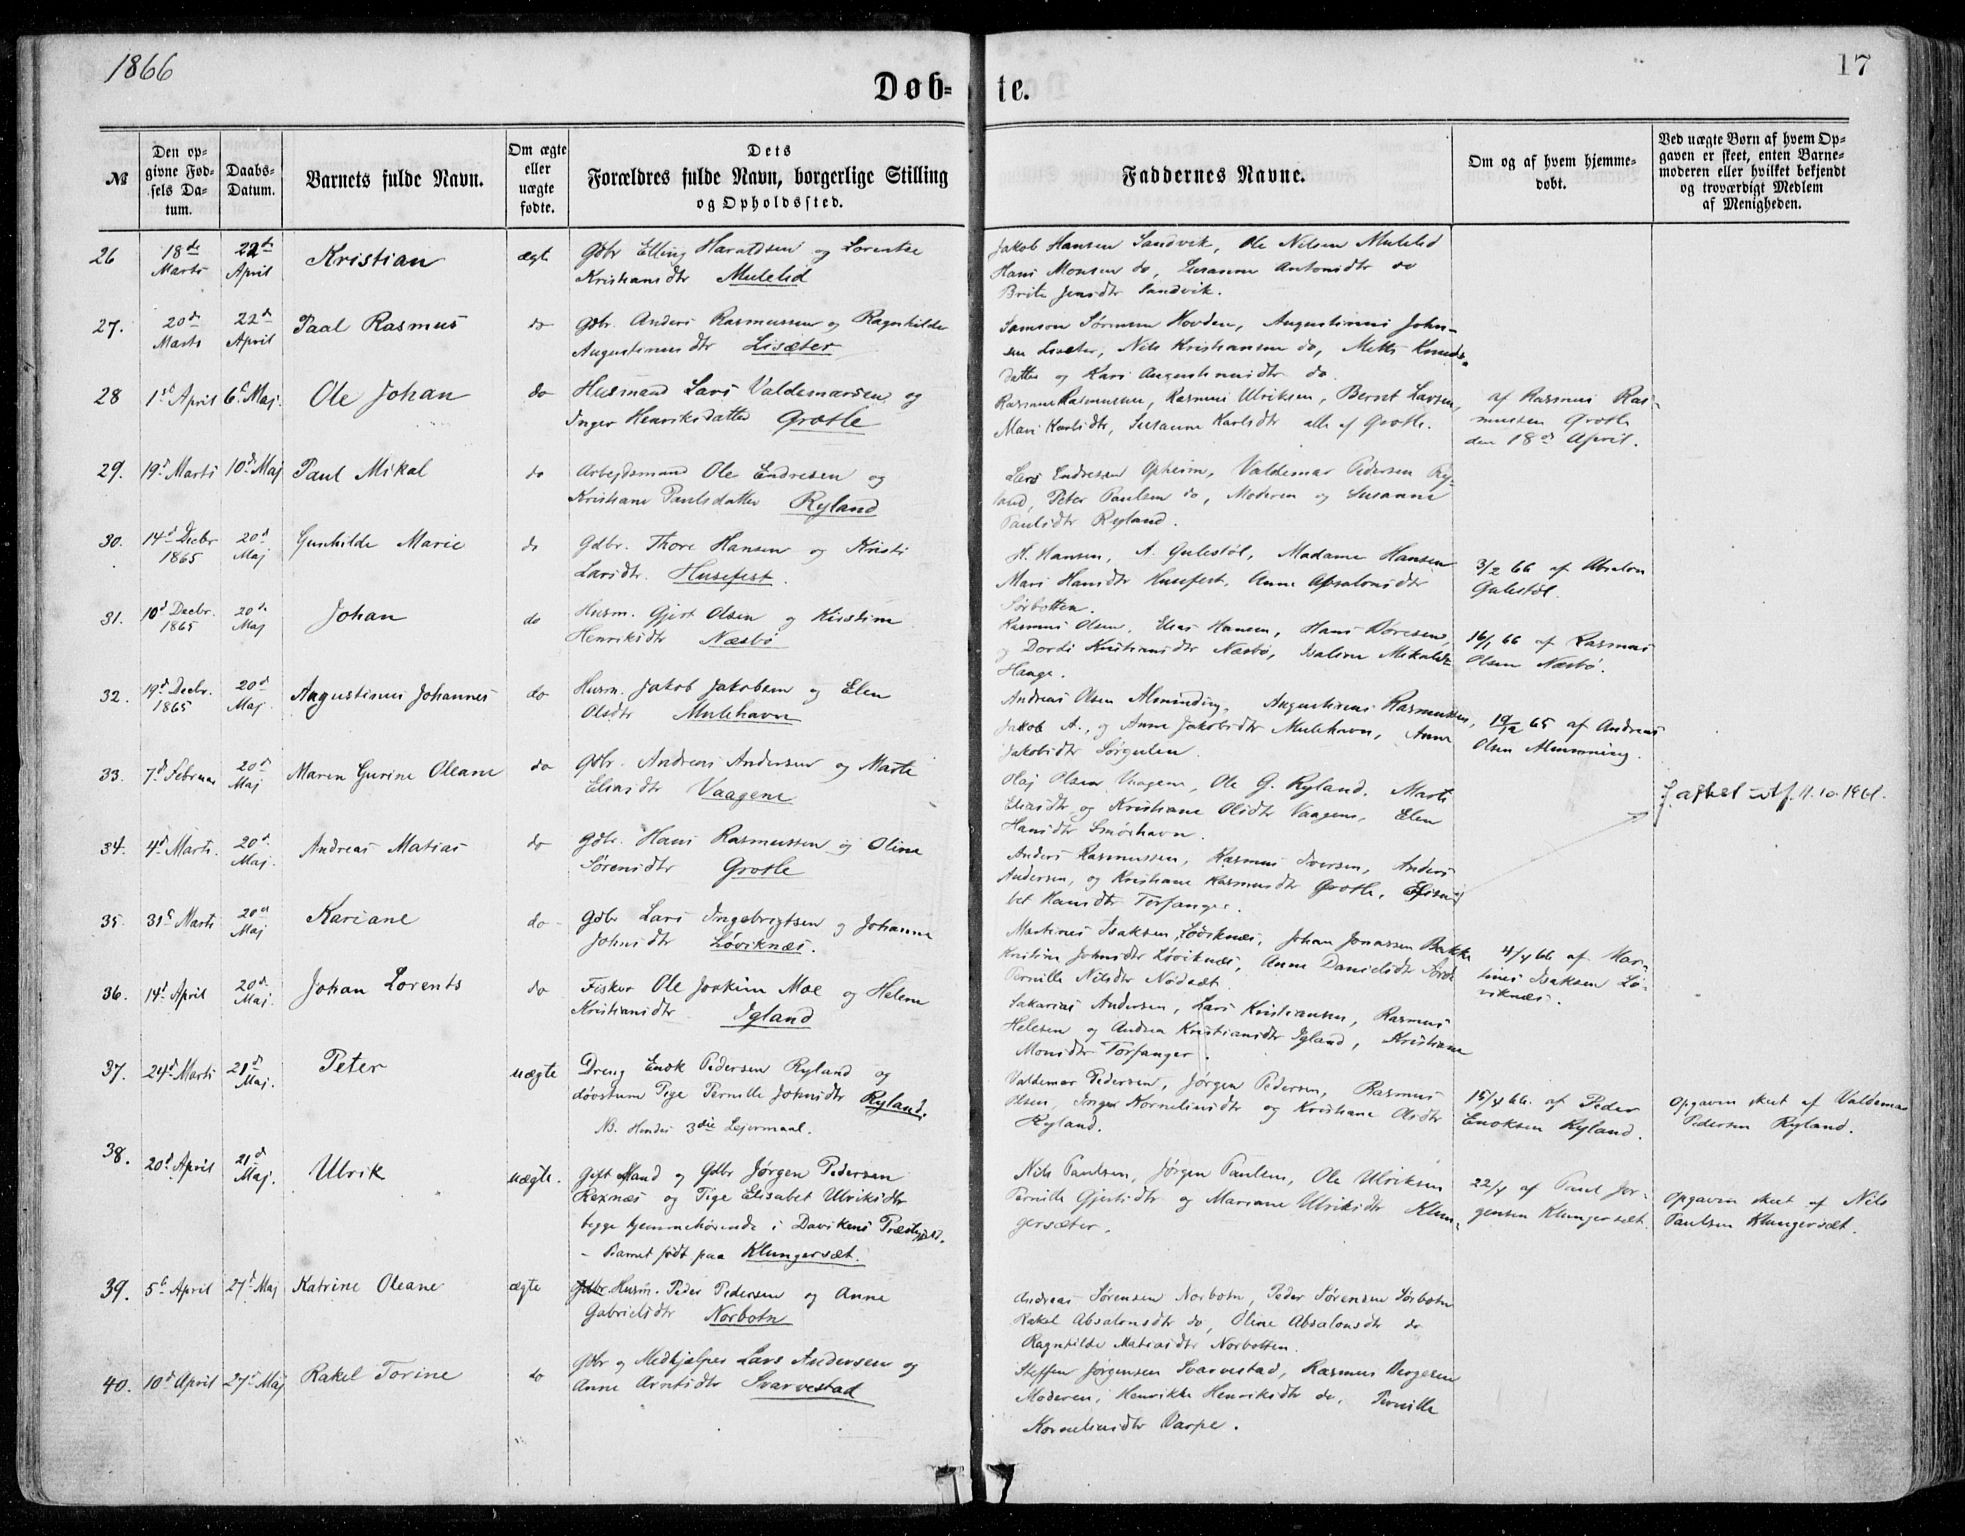 1866
17
Døb= te.
№
Den op-
givne Fød-
sels Da-
tum.
Daabs-
Datum.
Barnets fulde Navn.
Om ægte
eller
uægte
fødte.
Dets
Forældres fulde Navn, borgerlige Stilling
og Opholdssted.
Faddernes Navne.
Om og af hvem hjemme-
døbt.
Ved uægte Børn af hvem Op-
gaven er skeet, enten Barne-
moderen eller hvilket bekjendt
og troværdigt Medlem
af Menigheden.
26 18de Marts 22de April Kristian ægt
Gdbr Elling Haraldsen og Lorentse
Kristiansdtr Mulelid
Jakob Hansen Sandvik, Ole Nilsen Mulelid
Hans Monsen do, Susanne Antonidtr do
Brite Jensdtr Sandvik.
27. 20de Marts 22de April Paal Rasmus do
Gdbr. Anders Rasmussen og Ragnhilde
Augustinusdtr Lisæter
Samson Sörensen Hovden, Augustinus John-
sen Liseter, Nils Kristiansen do, Mette Knuds-
datter og Kari Augustinusdtr do.
28 1st April 6te Maj. Ole Johan do
Husmand Lars Valdemarsen og
Inger Henriksdatter Grotle
Rasmus Rasmussen, Rasmus Ulriksen, Bernt Larsen,
Mari Karlsdtr, Susanne Karlsdtr alle af Grotle.
af Rasmus Ras-
mussen Grotle
den 18de April.
29. 19d Marts 10d Maj Paul Mikal do
Arbejdsmand Ole Endresen og
Kristiane Paulsdatter Ryland
Lars Endresen Opheim, Valdemar Pedersen Ry-
land, Peter Paulsen do, Moderen og Susanne
Paulsdtr Ryland.
30. 14d Decbr 1865 20d Maj Gunhilde Marie do
Gdbr. Thore Hansen og Kristi
Larsdtr. Husefest.
H. Hansen, A. Gulestöl, Madame Hansen
Mari Hansdtr Husefest, Anne Absalonsdtr
Sørbotten.
3/2 66 af Absalon
Gulestöl.
31. 10d Decbr. 1865 20de Maj Johan do
Husm. Gjert Olsen og Kirstine
Henriksdtr Næsbö
Rasmus Olsen, Elias Hansen, Hans Toresen,
og Dordi Kristiansdtr Næsbö, Malene Mikalsdtr
Hauge.
16/1 66 af Rasmus
Olsen Næsbö.
32. 19d Decbr. 1865 20d Maj. Augustinus Johannes do
Husm. Jakob Jakobsen og Elen
Olsdtr Mulehavn
Andreas Olsen Almending, Augustinus Rasmussen,
Jakob A., og Anne Jakobsdtr Mulehavn, Anne
Jakobsdtr Sørgulen.
19/12 65 af Andreas
Olsen Almenning.
33. 7d Februar 20d Maj Maren Gurine Oleane do
Gdbr. Andreas Andersen og Marte
Eliasdtr Vaagene
Olaj Olsen Vaagene, Ole G. Ryland, Marte
Eliasdtr og Kristiane Olsdtr Vaagene, Elen
Hansdtr Smörhavn.
34. 4d Marts. 20d. Maj. Andreas Matias do
Gdbr. Hans Rasmussen og Oline
Sörensdtr Grotle
Anders Rasmussen, Rasmus Iversen, Anders
Andersen, og Kristiane Rasmusdtr Grotle,
bet Hansdtr Torfanger.
11.10.1961.
35. 31te Marts 20de Maj Kariane do
Gdbr Lars Ingebrigtsen og Johanne
Johnsdtr Løviknæs.
Martinus Isaksen Løviknæs, Johan Jonassen Bakke
Kristine Johnsdtr Løviknæs, Anne Danielsdtr
Pernille Nilsdtr Nödsæt.
4/4 66 af Mar-
tinus Isaksen Lø-
viknæs.
36. 14d April 20d. Maj. Johan Lorents do
Fisker Ole Joakim Moe og Helene
Kristiansdtr Igland
Sakarias Andersen, Lars Kristiansen, Rasmus
Helesen og Andrea Kristiansdtr Igland, Kristiane
Monsdtr Torfanger.
37. 24d Marts 21d Maj. Peter uægte
Dreng Enok Pedersen Ryland og
døvstum Pige Pernille Johnsdtr Ryland.
NB. Hendes 3die Lejermaal.
Valdemar Pedersen, Jörgen Pedersen, Rasmus
Olsen, Inger Korneliusdtr og Kristiane Olsdtr
Ryland.
15/4 66. af Peder
Enoksen Ryland.
Opgaven skeet af Valdemar
Pedersen Ryland.
38. 20d April 21d Maj. Ulrik uægte.
Gift Mand og Gdbr Jørgen Pedersen
Rexnæs og Pige Elisabet Ulriksdtr
begge hjemmehørende i Davikens Præstegjeld.
- Barnet født paa Klungersæt.
Nils Paulsen, Jørgen Paulsen, Ole Ulriksen
Pernille Gjertsdtr og Mariane Ulriksdtr Klun-
gersæter.
22/4 af Paul Jør-
gensen Klungersæt.
Opgaven skeet af Nils
Paulsen Klungersæt.
39. 5te April 27d Maj Katrine Oleane ægte
Gdbr. Husm. Peder Pedersen og Anne
Gabrielsdtr Norbotn
Andreas Sørensen Norbotn, Peder Sørensen Sørbotn
Rakel Absalonsdtr do, Oline Absalonsdtr do
Ragnhilde Matiasdtr Norbotten.
40. 10d April 27d Maj Rakel Torine do
Gdbr og Medhjælper Lars Andersen og
Anne Arntsdtr Svarvestad
Steffen Jørgensen Svarvestad, Rasmus
Moderen, Henrikke Henriksdtr do, Pernille
Korneliusdtr Varpe.